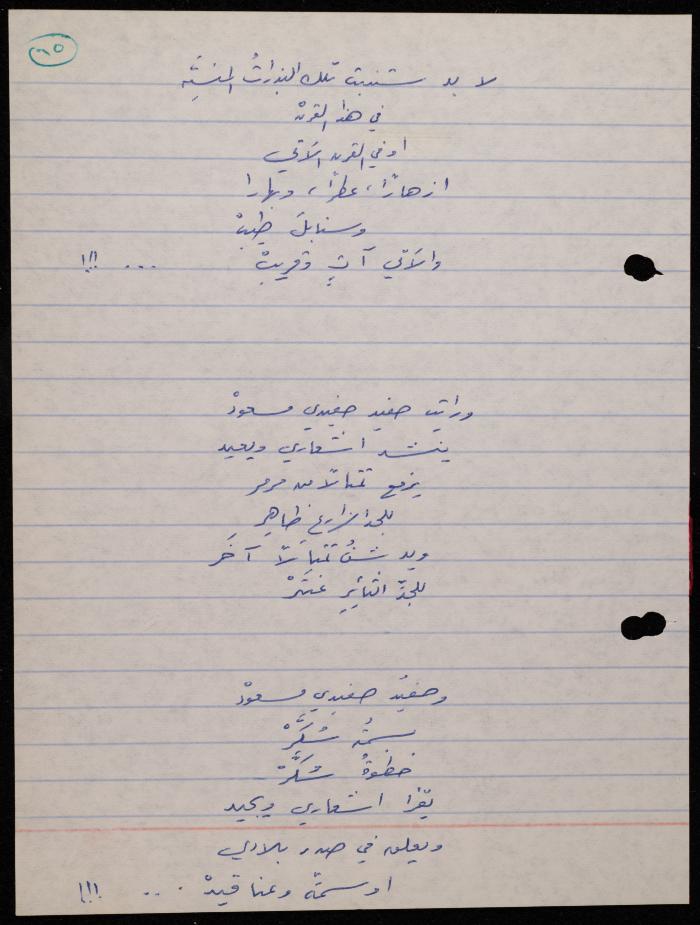 ٦٥
لا بد ستنبت تلك البذراتُ المنسيّه
في هذا القرنْ
او في القرن الآتي
ازهارًا، عطرًا، وبهارا
وسنابلَ طِيبْ
والآتي آتٍ وقريبْ ... !!!
ورايت حفيد حفيدي مسعودْ
ينشد اشعاري ويعيد
يرفع تمثالا من مرمر
للجد الزارع ظاهِر
ويدشنُ تمثالًا آخَر
للجدّ الثايرِ عنترْ
وحفيْد حفيدِي مسعودْ
بسمتُه سُكَّرْ
خطوةُ سُكَّرْ
يقرا اشعاري ويجيد
ويعلق في صدر بلادي
اوسمةً وعناقيدْ ... !!!